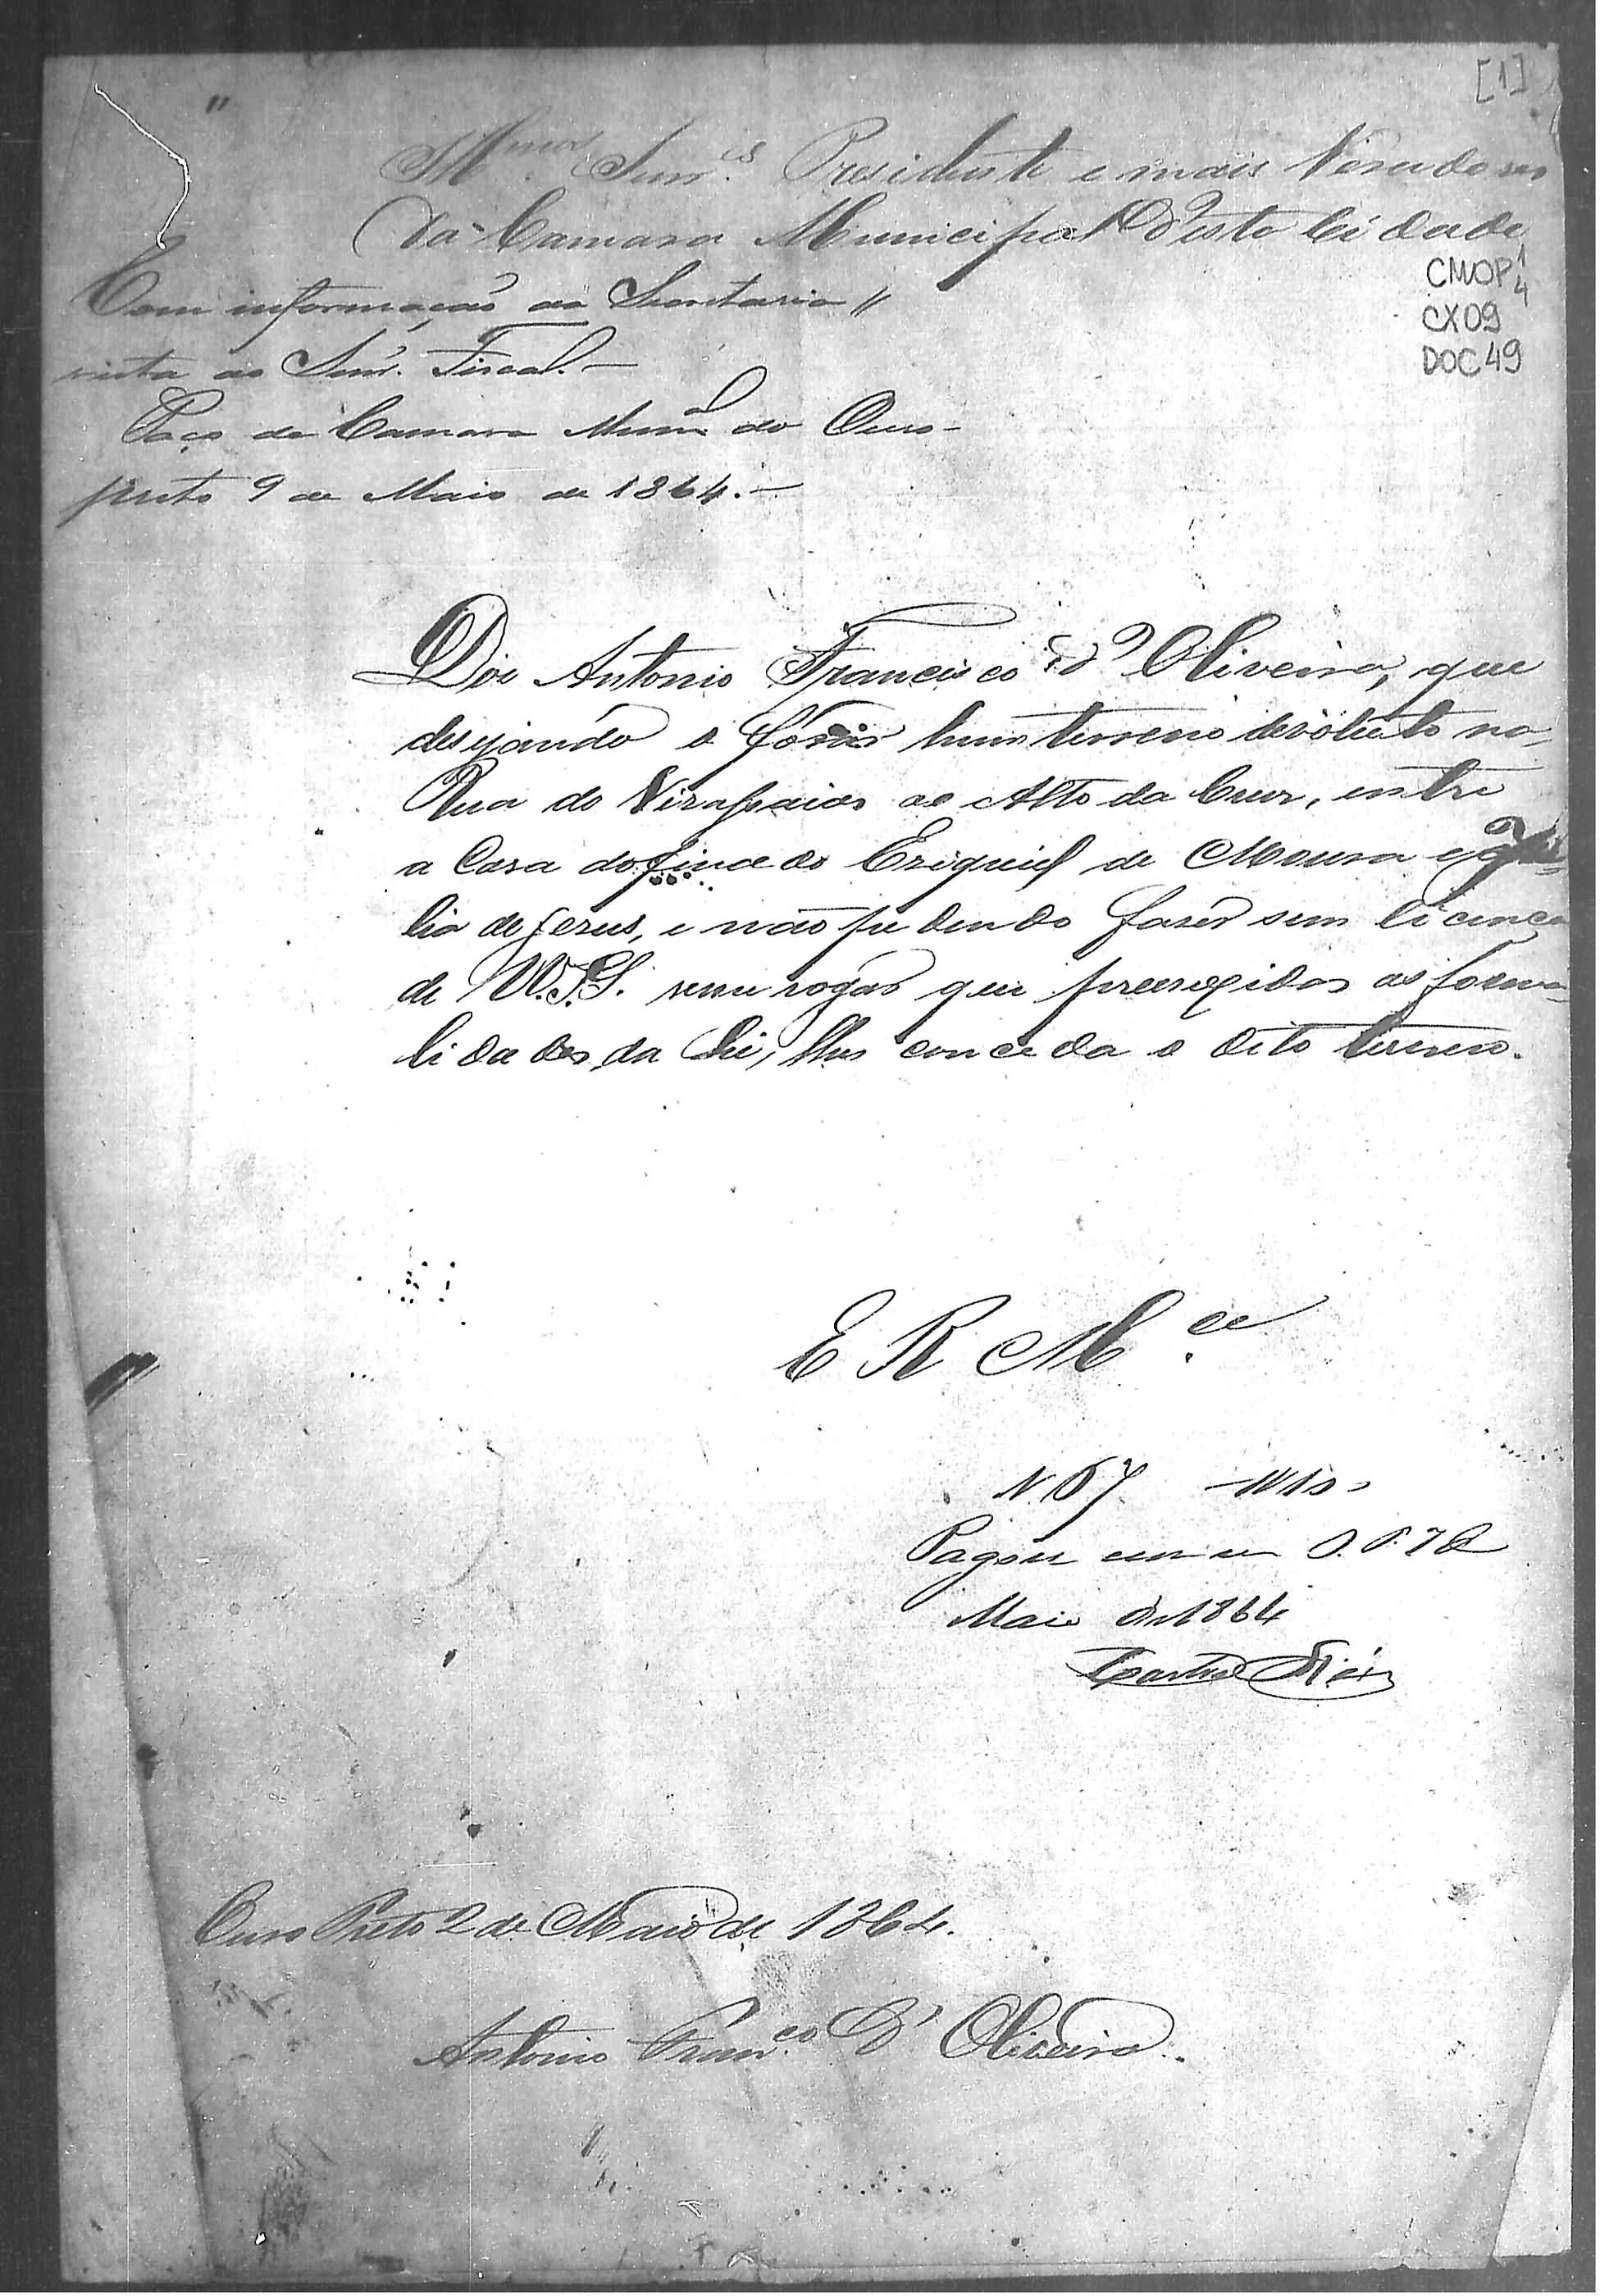 [1]
Ill.mos Snr.es Presidente e mais Veriadores
da Camara Municipal desta Cidade
CMOP 1/4
CX 09
DOC 49
Com informação do Secretario
vista ao Snr. Fiscal.—
Paço da Camara Munal do Ouro-
preto 9 de Maio de 1864.—
Diz Antonio Francisco d'Oliveira, que
desejando a forar hum terreno devoluto na
Rua do Virasaias ao Alto da Cruz, entre
a Casa do finado Eziquiel de Moura e
de Jezus, e não pudendo fazer sem licença
de V.S.S. vem rogar que preenxidas as forma-
lidades da Lei, lhes conceda o dito terreno.
E R M.ce
N. 57
Pagou O. P.
Maio de 1864
Ouro Preto 2 de Maio de 1864.
Antonio Fran.co d'Oliveira